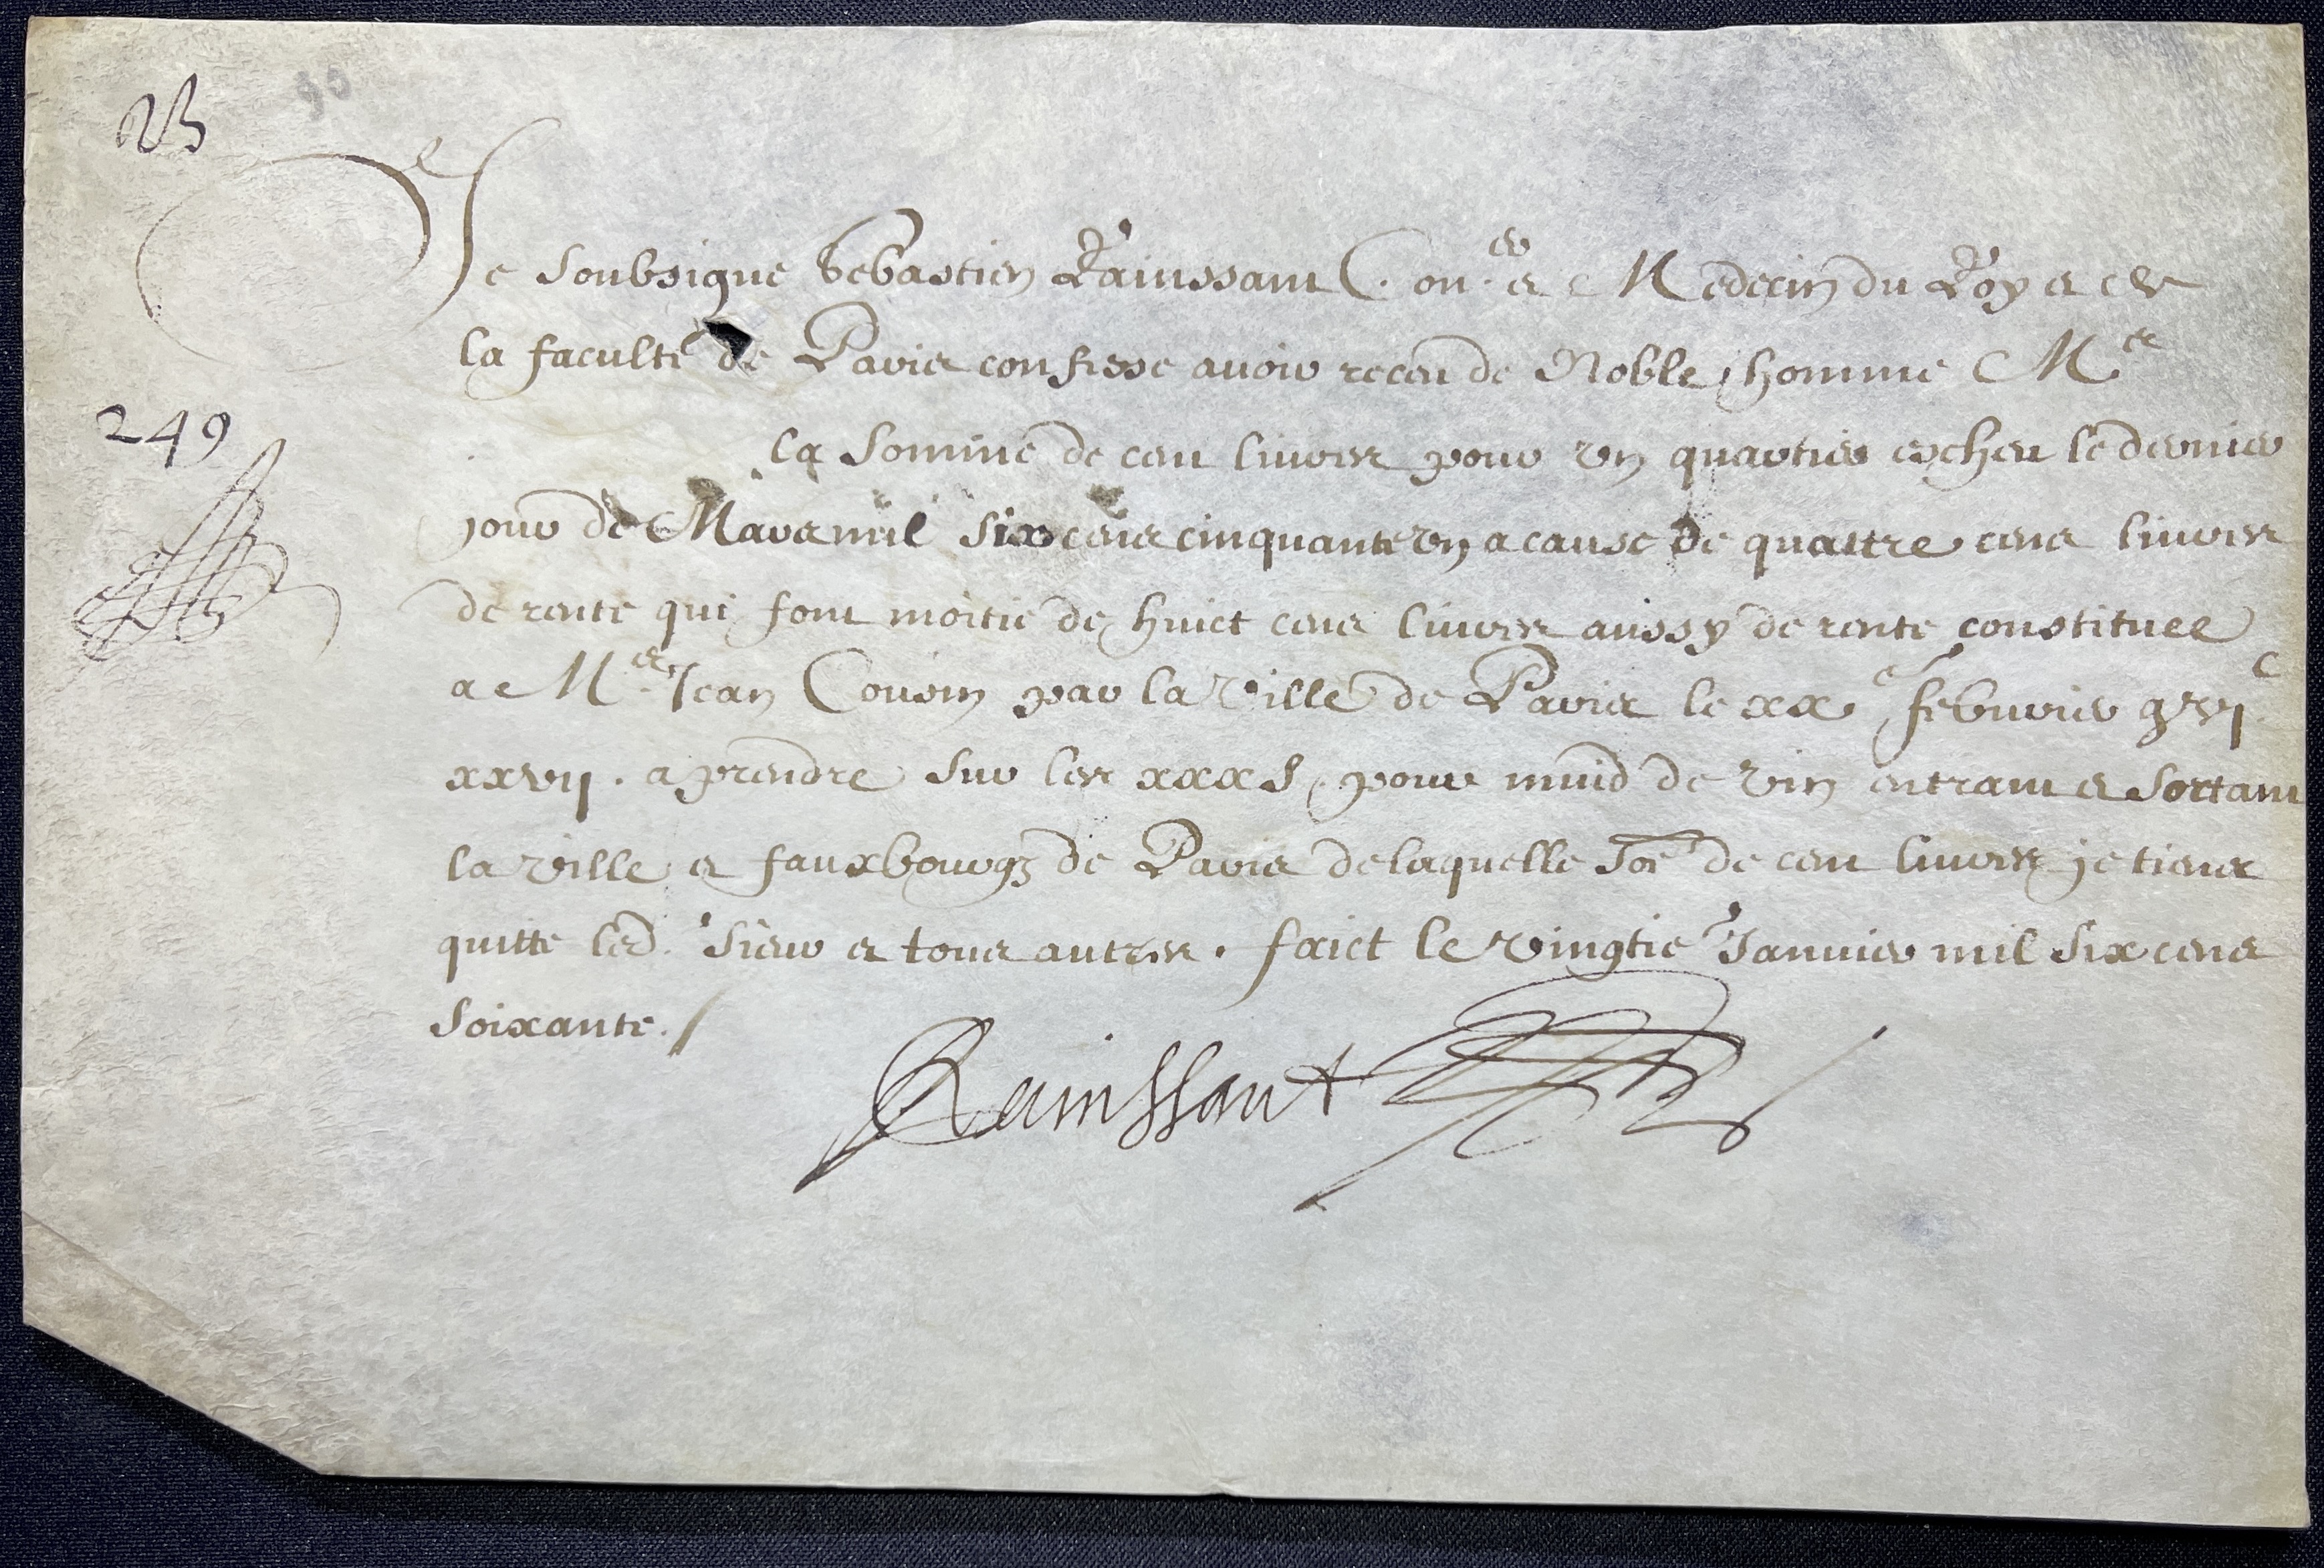 90
249
Je soubsigne Sebastien Rainssant Con.er et Medecin du Roy et en
la faculté de Paris confesse avoir receu de Noble homme Me
la somme de cent livres pour un quartier escheu le dernier
jour de Mars mil six cens cinquante un a cause de quattre cens livres
de rente qui font moitie de huict cens livres aussy de rente constituee
a Me Jean Cousin par la Ville de Paris le xxe febvrier gbvjc
xxvij. a prendre sur les xxx s pour muid de vin entrant et sortant
la ville et fauxbourgz de Paris de laquelle soe de cent livres je tiens
quitte led. sieur et tous autres. faict le vingtie Janvier mil six cens
soixante. /
Rainssant